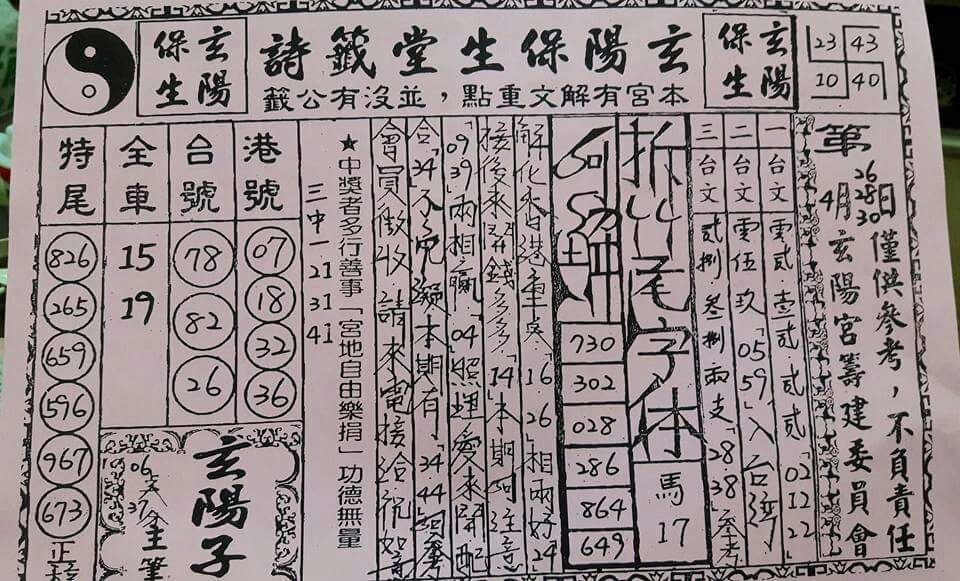 玄陽保生堂籤詩
本宮有解文重點，並沒有公籤
玄陽
保生
玄陽
保生
23 43
10 40
僅供參考，不負責任
第 26 28 30 日
4月玄陽宮籌建委員會
一台文 零貳.壹貳.貳貳「02.12.22」
二台文 零伍玖「05 59」入台灣
三台文 貳捌.叁捌兩支「28.38」參考
拆 尾字体 馬 17
730
302
028
286
864
649
解化 香港重点「16.26相兩好24
接後來 錢多多「14」本期 注意
「09.39」兩相贏「04」照理愛來
合「34」不免疑本期有「34.44」
會員傲收 請來電接洽祝如意
★中獎者多行善事「宮地自由樂捐」功德無量
三中一 21 31 41
港號
07
18
32
36
台號
78
82
26
全車
15
19
特尾
826
265
659
596
967
673
玄陽子
06
37
筆